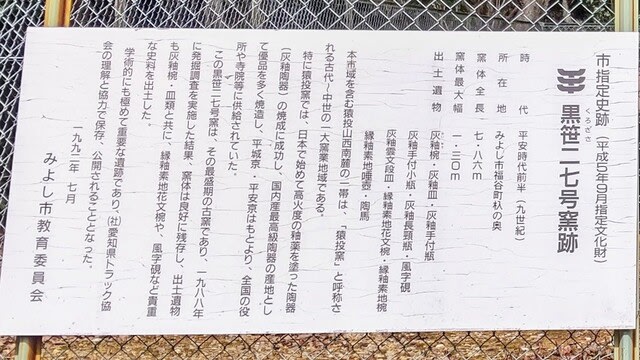 市指定史跡(平成5年9月指定文化財)
くろざさ
黒笹二七号窯跡
時代 平安時代前半(九世紀)
所在地 みよし市福谷町杁の奥
窯体全長 七・八六m
窯体最大幅 一・三〇m
出土遺物 灰釉椀・灰釉皿・灰釉手付瓶
灰釉手付小瓶・灰釉長頸瓶・風字硯
灰釉雲文段皿・緑釉素地花文椀・緑釉素地椀
緑釉素地唾壺・陶馬
本市域を含む猿投山西南麓の一帯は、「猿投窯」と呼称さ
れる古代〜中世の一大窯業地域である。
特に猿投窯では、日本で始めて高火度の釉薬を塗った陶器
(灰釉陶器)の焼成に成功し、国内産最高級陶器の産地とし
て優品を多く焼造し、平城京、平安京はもとより、全国の役
所や寺院等に供給されていた。
この黒笹二七号窯は、その最盛期の古窯であり、一九八八年
に発掘調査を実施した結果、窯体は良好に残存し、出土遺物
も灰釉椀・皿類と共に、緑釉素地花文椀や、風字硯など貴重
な史料を出土した。
学術的にも極めて重要な遺跡であり、(社)愛知県トラック協
会の理解と協力で保存、公開されることとなった。
一九九二年 七月
みよし市教育委員会